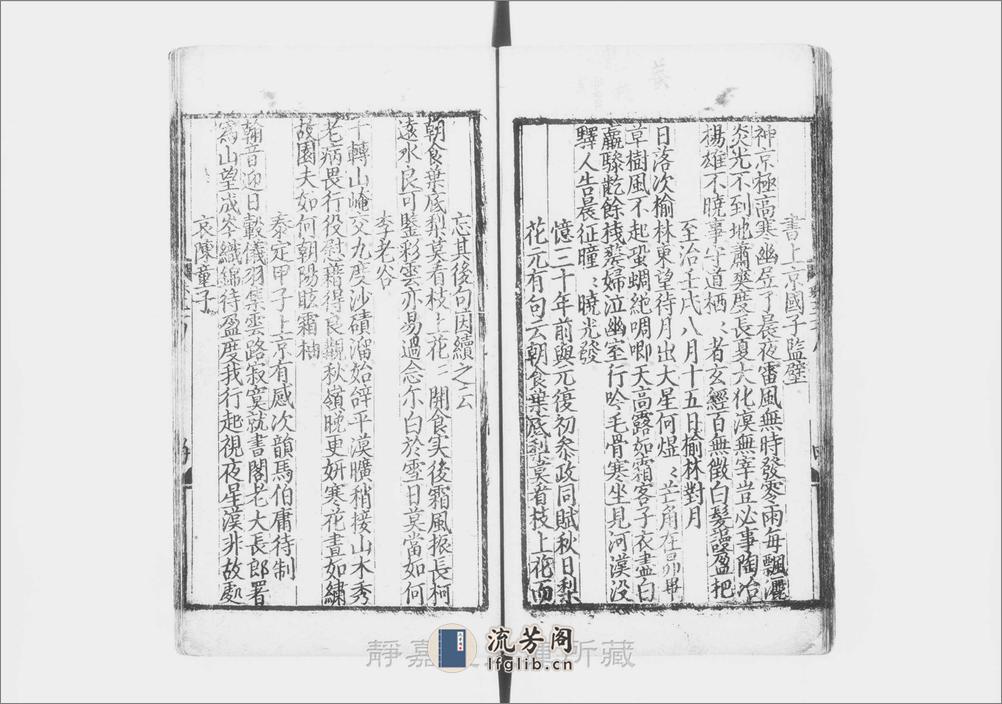 書上京國子監壁
神京極高寒幽居了晨夜雷風無時發零雨每飄灑
炎光不到地蕭爽度長夏大化漠無宰豈必事陶冶
楊雄不曉事守道栖〻者玄經百無徵白髮蘊盈把
至治壬戌八月十五日榆林對月
日落次榆林東望待月出大星何煜〻芒角在昴畢
草樹風不起蛩蜩絶啁唧天高露如霜客子衣盡白
羸驂齕餘棧嫠婦泣幽室行吟毛骨寒坐見河漢没
驛人告晨征瞳〻曉光發
憶三十年前與元復初叅政同賦秋日梨
花元有句云朝食葉底梨莫看枝上花而
忘其後句因續之云
朝食葉底梨莫看枝上花〻開食実後霜風振長柯
遠水良可鑒彩雲亦易過念尓白於雪日莫當如何
李老谷
十轉山崦交九度沙磧溜始辝平漠曠稍接山木秀
老病畏行役慰藉得良觀秋嶺晚更妍寒花晝如繡
故園夫如何朝陽眩霜柚
泰定甲子上京有感次韻馬伯庸待制
翰音迎日轂儀羽集雲路寂寞就書閣老大長郎署
為山望成岑織綿待盈度我行起視夜星漢非故處
哀陳童子
靜嘉 所藏
流芳阁
lfglib.cn